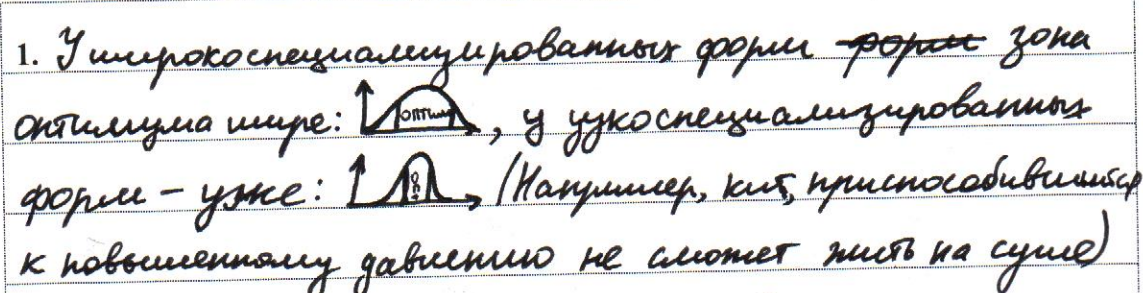 1. У широкоспециализированных форм форм зона
оптимума шире: оптим, у узкоспециализированных
форм – уже: опт (Например, кит, приспособившийся
к повышенному давлению не сможет жить на суше)